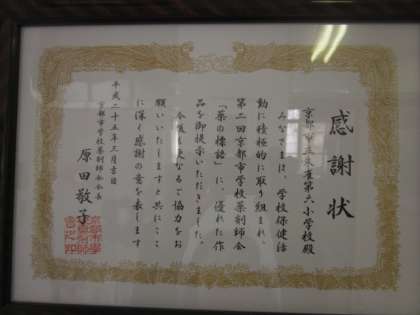 感謝状
京都市立朱雀第六小学校殿
みなさまは、学校保健活
動に積極的に取り組まれ、
第二回京都市学校薬剤師会
「薬の標語」に、優れた作
品を御提示いただきました。
今後とも なるご協力をお
願いいたしますと共にここ
に深く感謝の意を表します
平成二十五年三月吉日
京都市学校薬剤師会会長
原田敬子